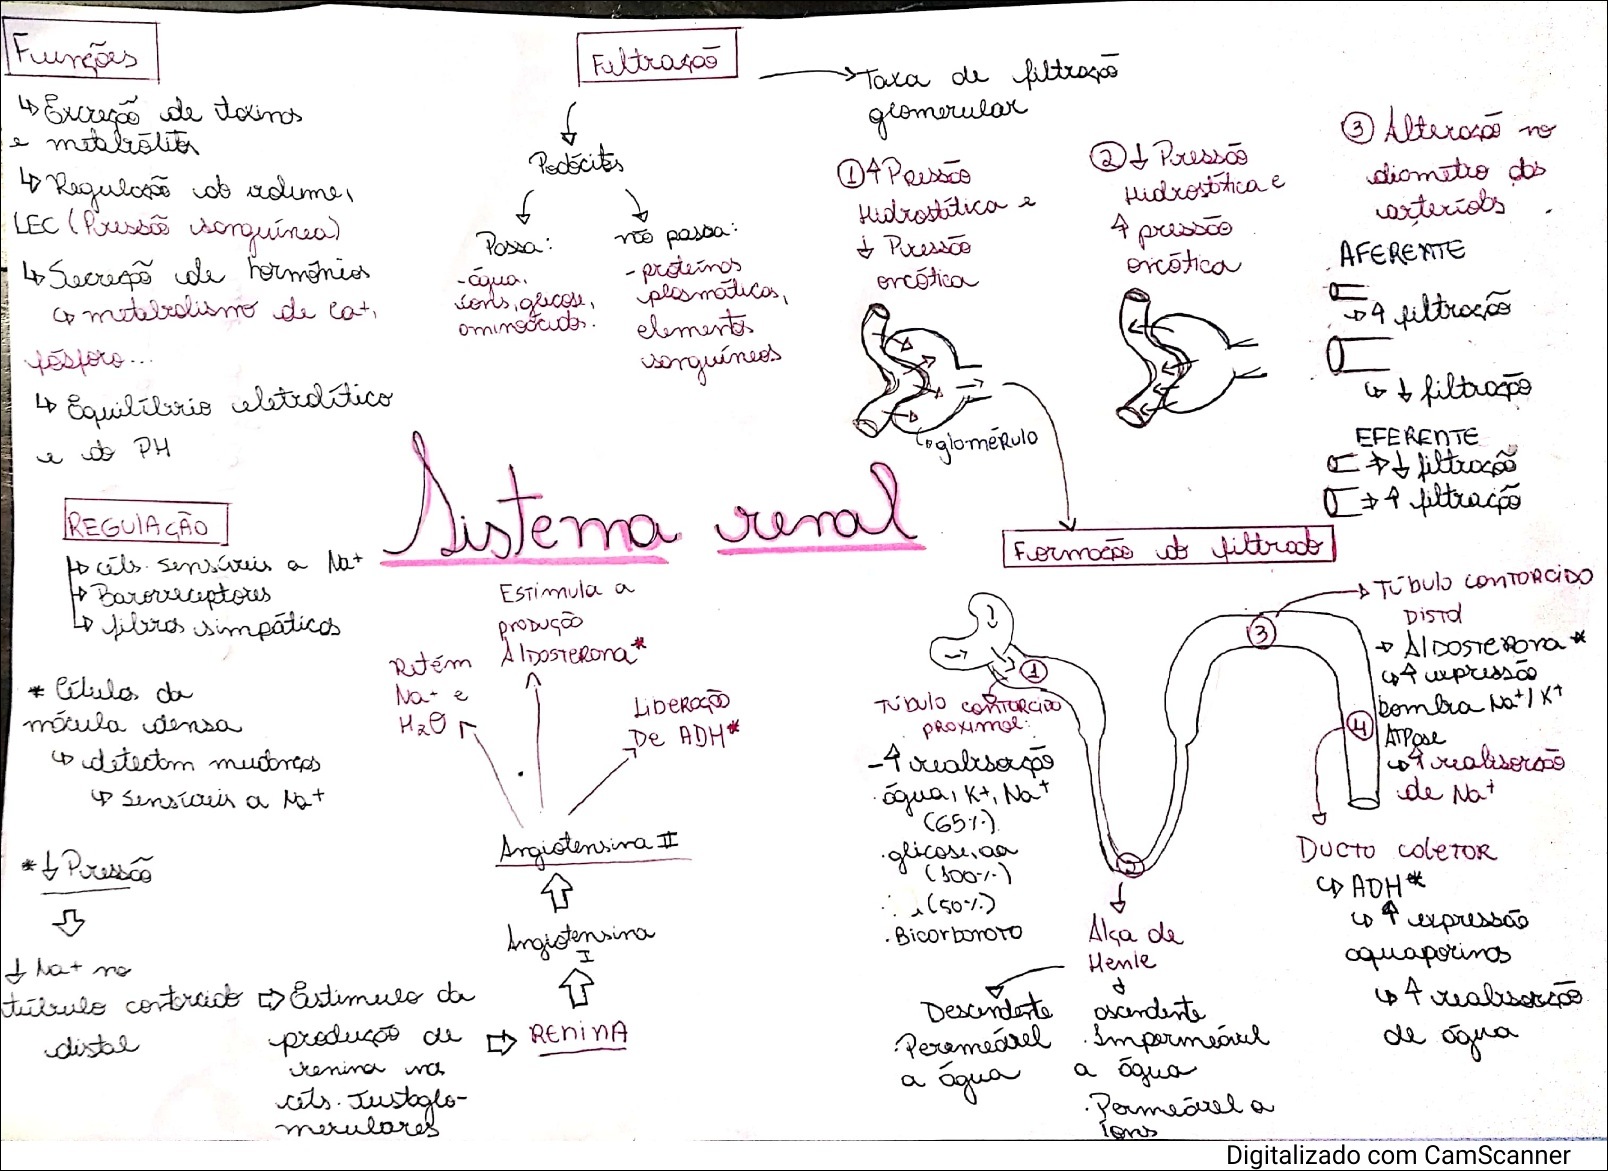 Funções
↳ Excreção de toxinas
e metabólitos
↳ Regulação do volume,
LEC (Pressão sanguínea)
↳ Secreção de hormônios
↳ metabolismo de Ca+,
fósforo...
↳ Equilíbrio eletrolítico
e do PH
Filtração
Taxa de filtração
glomerular
Podócitos
Passa:
-água,
íons, glicose,
aminoácidos.
não passa:
- proteínas
plasmáticas,
elementos
sanguíneos
① ↑ Pressão
Hidrostática e
↓ Pressão
oncótica
↳ glomérulo
② ↓ Pressão
Hidrostática e
↑ pressão
oncótica
③ Alteração no
diametro das
arteríolas
AFERENTE
↳ ↑ filtração
↳ ↓ filtração
EFERENTE
⇒ ↓ filtração
⇒ ↑ filtração
Sistema renal
REGULAÇÃO
↳ céls. sensíveis a Na+
↳ Barorreceptores
↳ fibras simpáticas
* Células da
mácula densa
↳ detectam mudanças
↳ sensíveis a Na+
* ↓ Pressão
↓ Na+ no
túbulo contorcido
distal
⇨ Estimulo da
produção de
renina nas
céls. Justaglo-
merulares
⇨ RENINA
Angiotensina
I
Angiotensina II
Retém
Na+ e
H₂O
Estimula a
produção
Aldosterona*
Liberação
De ADH*
Formação do filtrado
①
Túbulo contorcido
proximal:
- ↑ reabsorção
· água, K+, Na+
(65%)
· glicose, aa
(100%)
(50%)
· Bicarbonato
Alça de
Henle
Descendente
· Peremeável
a água
ascendente
· Impermeável
a água
· Permeável a
íons
③
Túbulo contorcido
Distal
→ Aldosterona*
↳ ↑ expressão
bomba Na+/K+
ATPase
↳ ↑ reabsorção
de Na+
④
Ducto coletor
↳ ADH*
↳ ↑ expressão
aquaporinas
↳ ↑ reabsorção
de água
Digitalizado com CamScanner